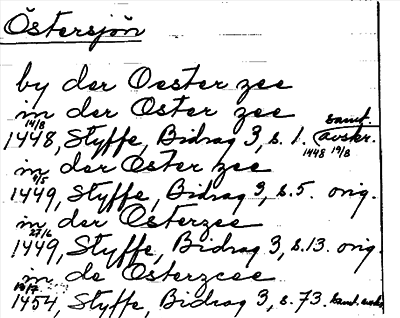 Östersjön
by der Oester zee
in der Oster zee
14/8 samt.
1448, Styffe, Bidrag 3, s. 1. (avskr.
1448 19/8
in der Oster zee
9/5
1449, Styffe, Bidrag 3, s. 5. orig.
in der Osterzee
27/6
1449, Styffe, Bidrag 3, s. 13. orig.
in de Osterzcee
1454, Styffe, Bidrag 3, s. 73. samt. avskr.